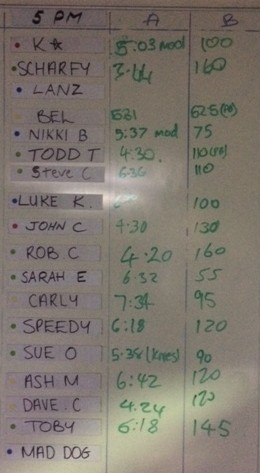 5 PM A B
K☆ 5:03 mod 100
SCHARFY 3:44 160
LANZ
BEL 5:31 62.5 (PB)
NIKKI B 5:37 mod 75
TODD T 4:30. 110 (PB)
Steve C 6:36 110
LUKE K. 100
JOHN C 4:30 130
ROB C 4:20 160
SARAH E 6:32 55
CARLY 7:34 95
SPEEDY 6:18 120
SUE O 5:35 (Knees) 90
ASH M 6:42 120
DAVE.C 4:24 120
TOBY 6:18 145
MAD DOG